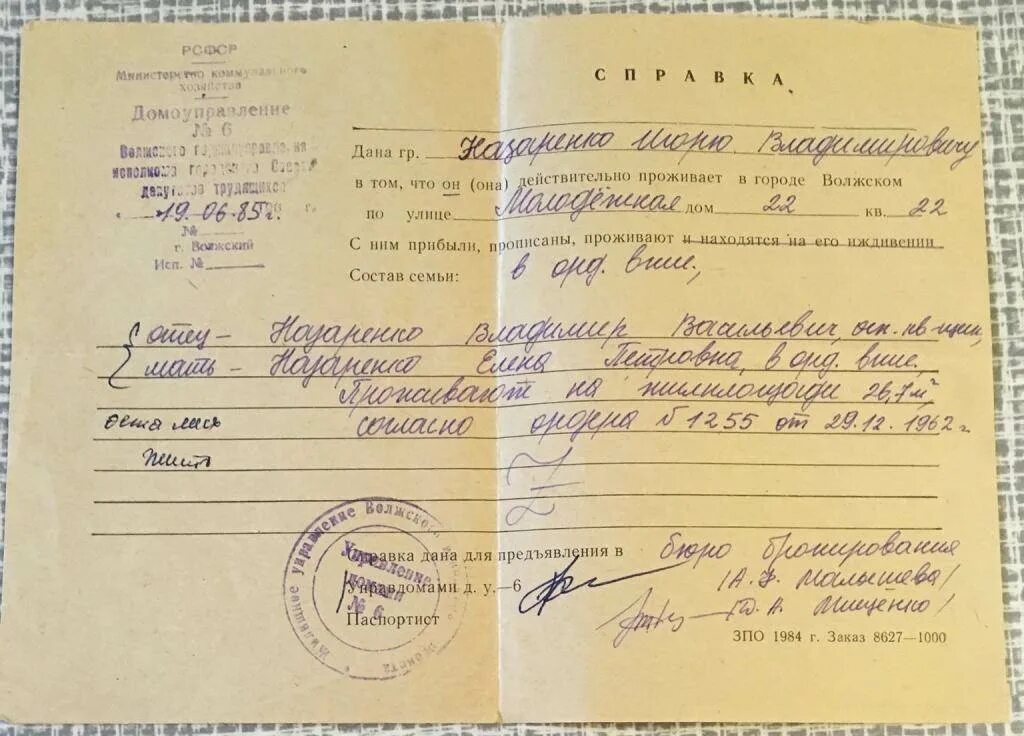 РСФСР
Министерство коммунального
хозяйства
Домоуправление
№ 6
Волжского
исполкома городского
депутатов трудящихся
19.06.85г.
№
г. Волжский
Исп. №
СПРАВКА
Дана гр. Назаренко Игорю Владимировичу
в том, что он (она) действительно проживает в городе Волжском
по улице Молодёжная дом 22 кв. 22
С ним прибыли, прописаны, проживают и находятся на его иждивении
Состав семьи: в орд. впис.,
отец – Назаренко Владимир Васильевич, осн. кв-щик,
мать – Назаренко Елена Петровна, в орд. впис.
Проживают на жилплощади 26,7 м²
остались согласно ордера № 1255 от 29.12.1962 г.
жить
Справка дана для предъявления в бюро бронирования
Управдомами д. у.—6 /А. Малышева/
Паспортист Мищенко/
Жилищное управление Волжского
Управление
домами
№ 6
ЗПО 1984 г. Заказ 8627—1000